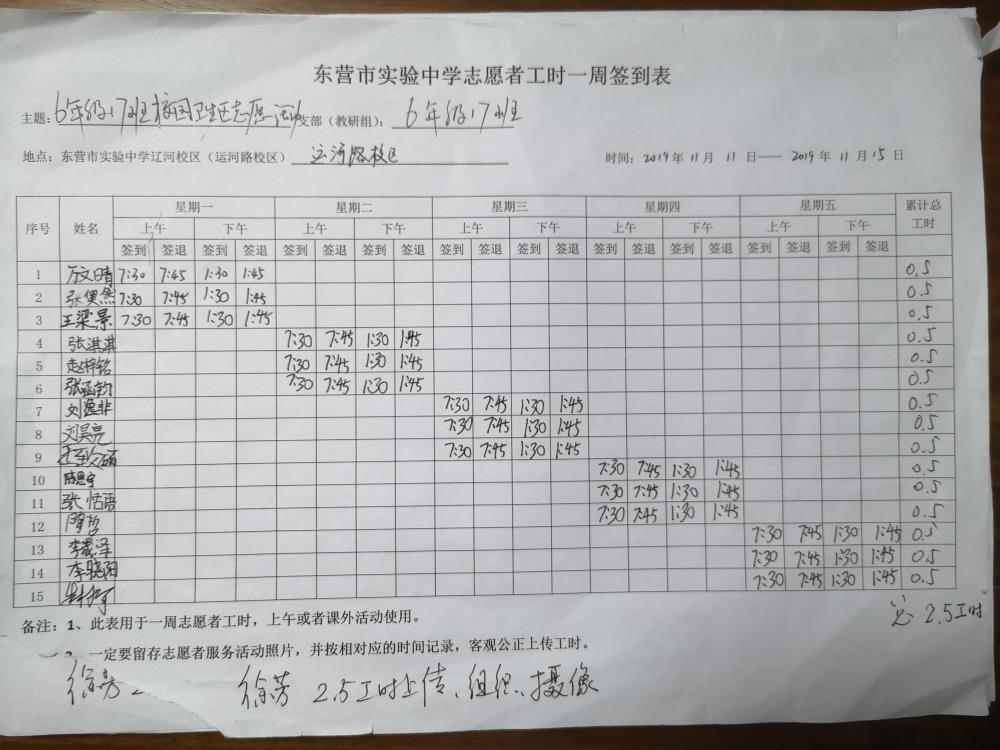 东营市实验中学志愿者工时一周签到表
主题：6年级17班校园卫生区志愿活动 支部（教研组）：6年级17班
地点：东营市实验中学辽河校区（运河路校区） 运河路校区 时间：2019年11月11日——2019年11月15日
序号 姓名 星期一 星期二 星期三 星期四 星期五 累计总工时
上午 下午 上午 下午 上午 下午 上午 下午 上午 下午
签到 签退 签到 签退 签到 签退 签到 签退 签到 签退 签到 签退 签到 签退 签到 签退 签到 签退 签到 签退
1 7:30 7:45 1:30 1:45 0.5
2 张昊然 7:30 7:45 1:30 1:45 0.5
3 王梁景 7:30 7:45 1:30 1:45 0.5
4 张淇淇 7:30 7:45 1:30 1:45 0.5
5 赵梓铭 7:30 7:45 1:30 1:45 0.5
6 张函钧 7:30 7:45 1:30 1:45 0.5
7 刘逸非 7:30 7:45 1:30 1:45 0.5
8 刘昊亮 7:30 7:45 1:30 1:45 0.5
9 7:30 7:45 1:30 1:45 0.5
10 陈思宇 7:30 7:45 1:30 1:45 0.5
11 张恬语 7:30 7:45 1:30 1:45 0.5
12 隋哲 7:30 7:45 1:30 1:45 0.5
13 李晟泽 7:30 7:45 1:30 1:45 0.5
14 李晓阳 7:30 7:45 1:30 1:45 0.5
15 7:30 7:45 1:30 1:45 0.5
总 2.5工时
备注：1、此表用于一周志愿者工时，上午或者课外活动使用。
一定要留存志愿者服务活动照片，并按相对应的时间记录，客观公正上传工时。
徐芳 2 徐芳 2.5工时上传、组织、摄像